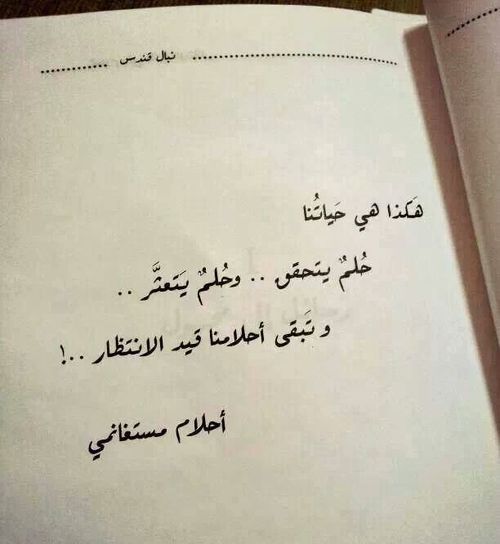 نبال قندس
هَكذا هي حَياتُنا
حُلمٌ يتحقق .. وحُلمٌ يَتعثَّر ..
و تَبقى أحلامنا قيد الانتظار ..!
أحلام مستغانمي